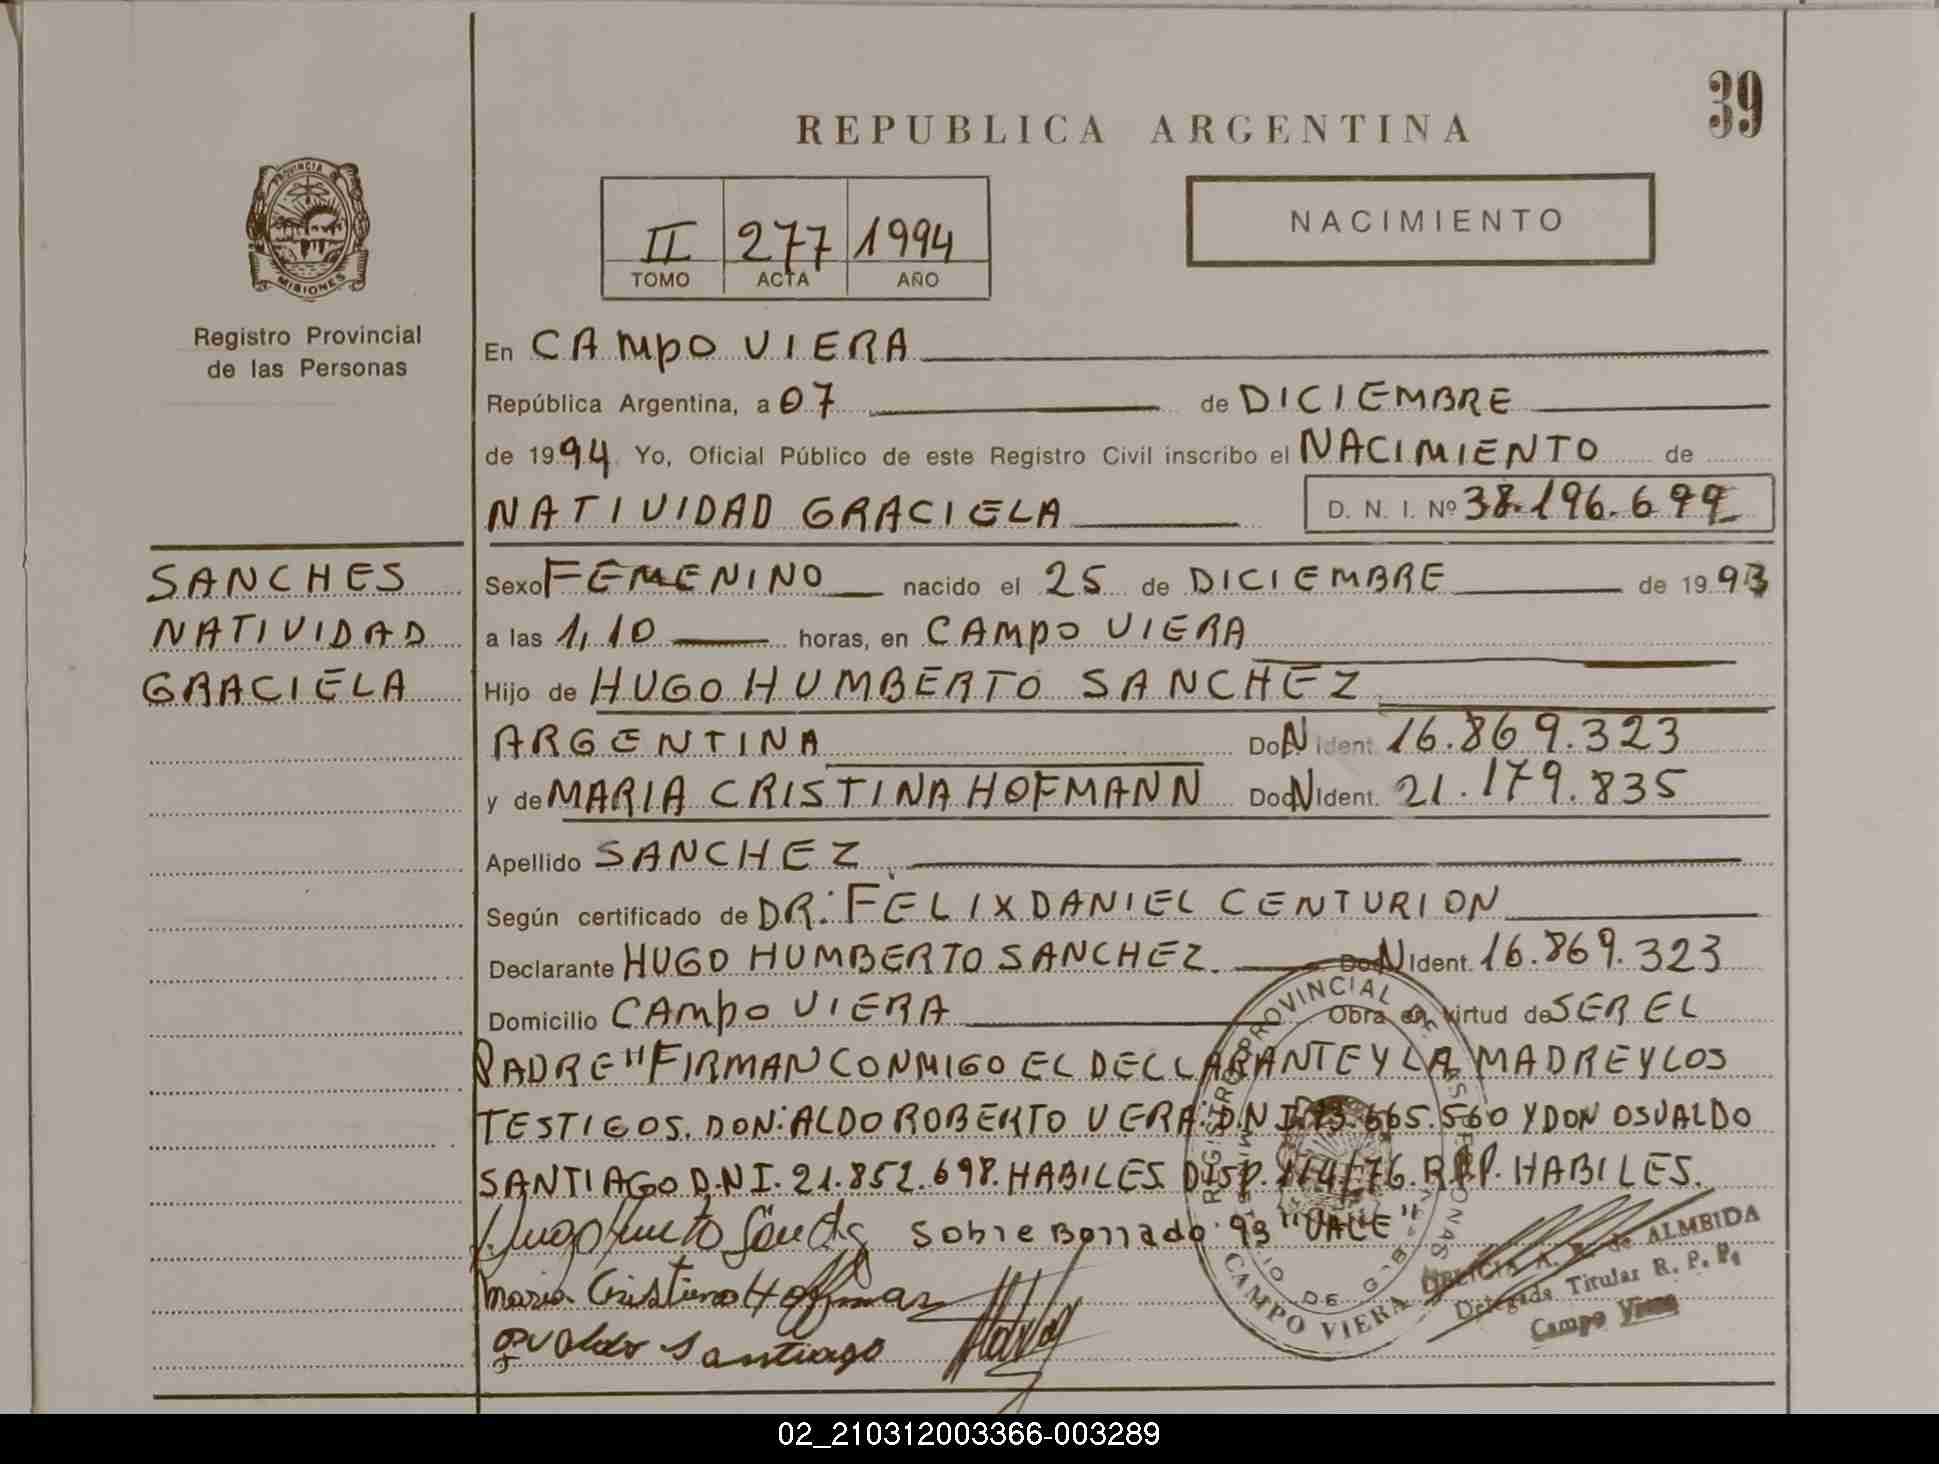 39
REPUBLICA ARGENTINA
PROVINCIA
MISIONES
Registro Provincial
de las Personas
II 277 1994
TOMO ACTA AÑO
NACIMIENTO
En CAMPO VIERA
República Argentina, a 07 de DICIEMBRE
de 1994 Yo, Oficial Público de este Registro Civil inscribo el NACIMIENTO de
NATIVIDAD GRACIELA D. N. I. Nº 38.196.699
SANCHES
NATIVIDAD
GRACIELA
Sexo FEMENINO nacido el 25 de DICIEMBRE de 1993
a las 1,10 horas, en CAMPO VIERA
Hijo de HUGO HUMBERTO SANCHEZ
ARGENTINA Ident. 16.869.323
y de MARIA CRISTINA HOFMANN Ident. 21.179.835
Apellido SANCHEZ
Según certificado de DR: FELIX DANIEL CENTURION
Declarante HUGO HUMBERTO SANCHEZ. Ident. 16.869.323
Domicilio CAMPO VIERA Obra en virtud de SER EL
PADRE "FIRMAN CONMIGO EL DECLARANTE Y LA MADRE Y LOS
TESTIGOS. DON: ALDO ROBERTO VERA: D.N.I. 13.665.560 Y DON OSVALDO
SANTIAGO D.N.I. 21.852.698. HABILES DISP. 114/76. R.P.P. HABILES.
Sobre Borrado 93 "VALE"
Maria Cristina Hoffman
Osvaldo Santiago
REGISTRO PROVINCIAL DE LAS PERSONAS
CAMPO VIERA
A. R. de ALMEIDA
Delegada Titular R. P. P.
Campo Viera
02_210312003366-003289